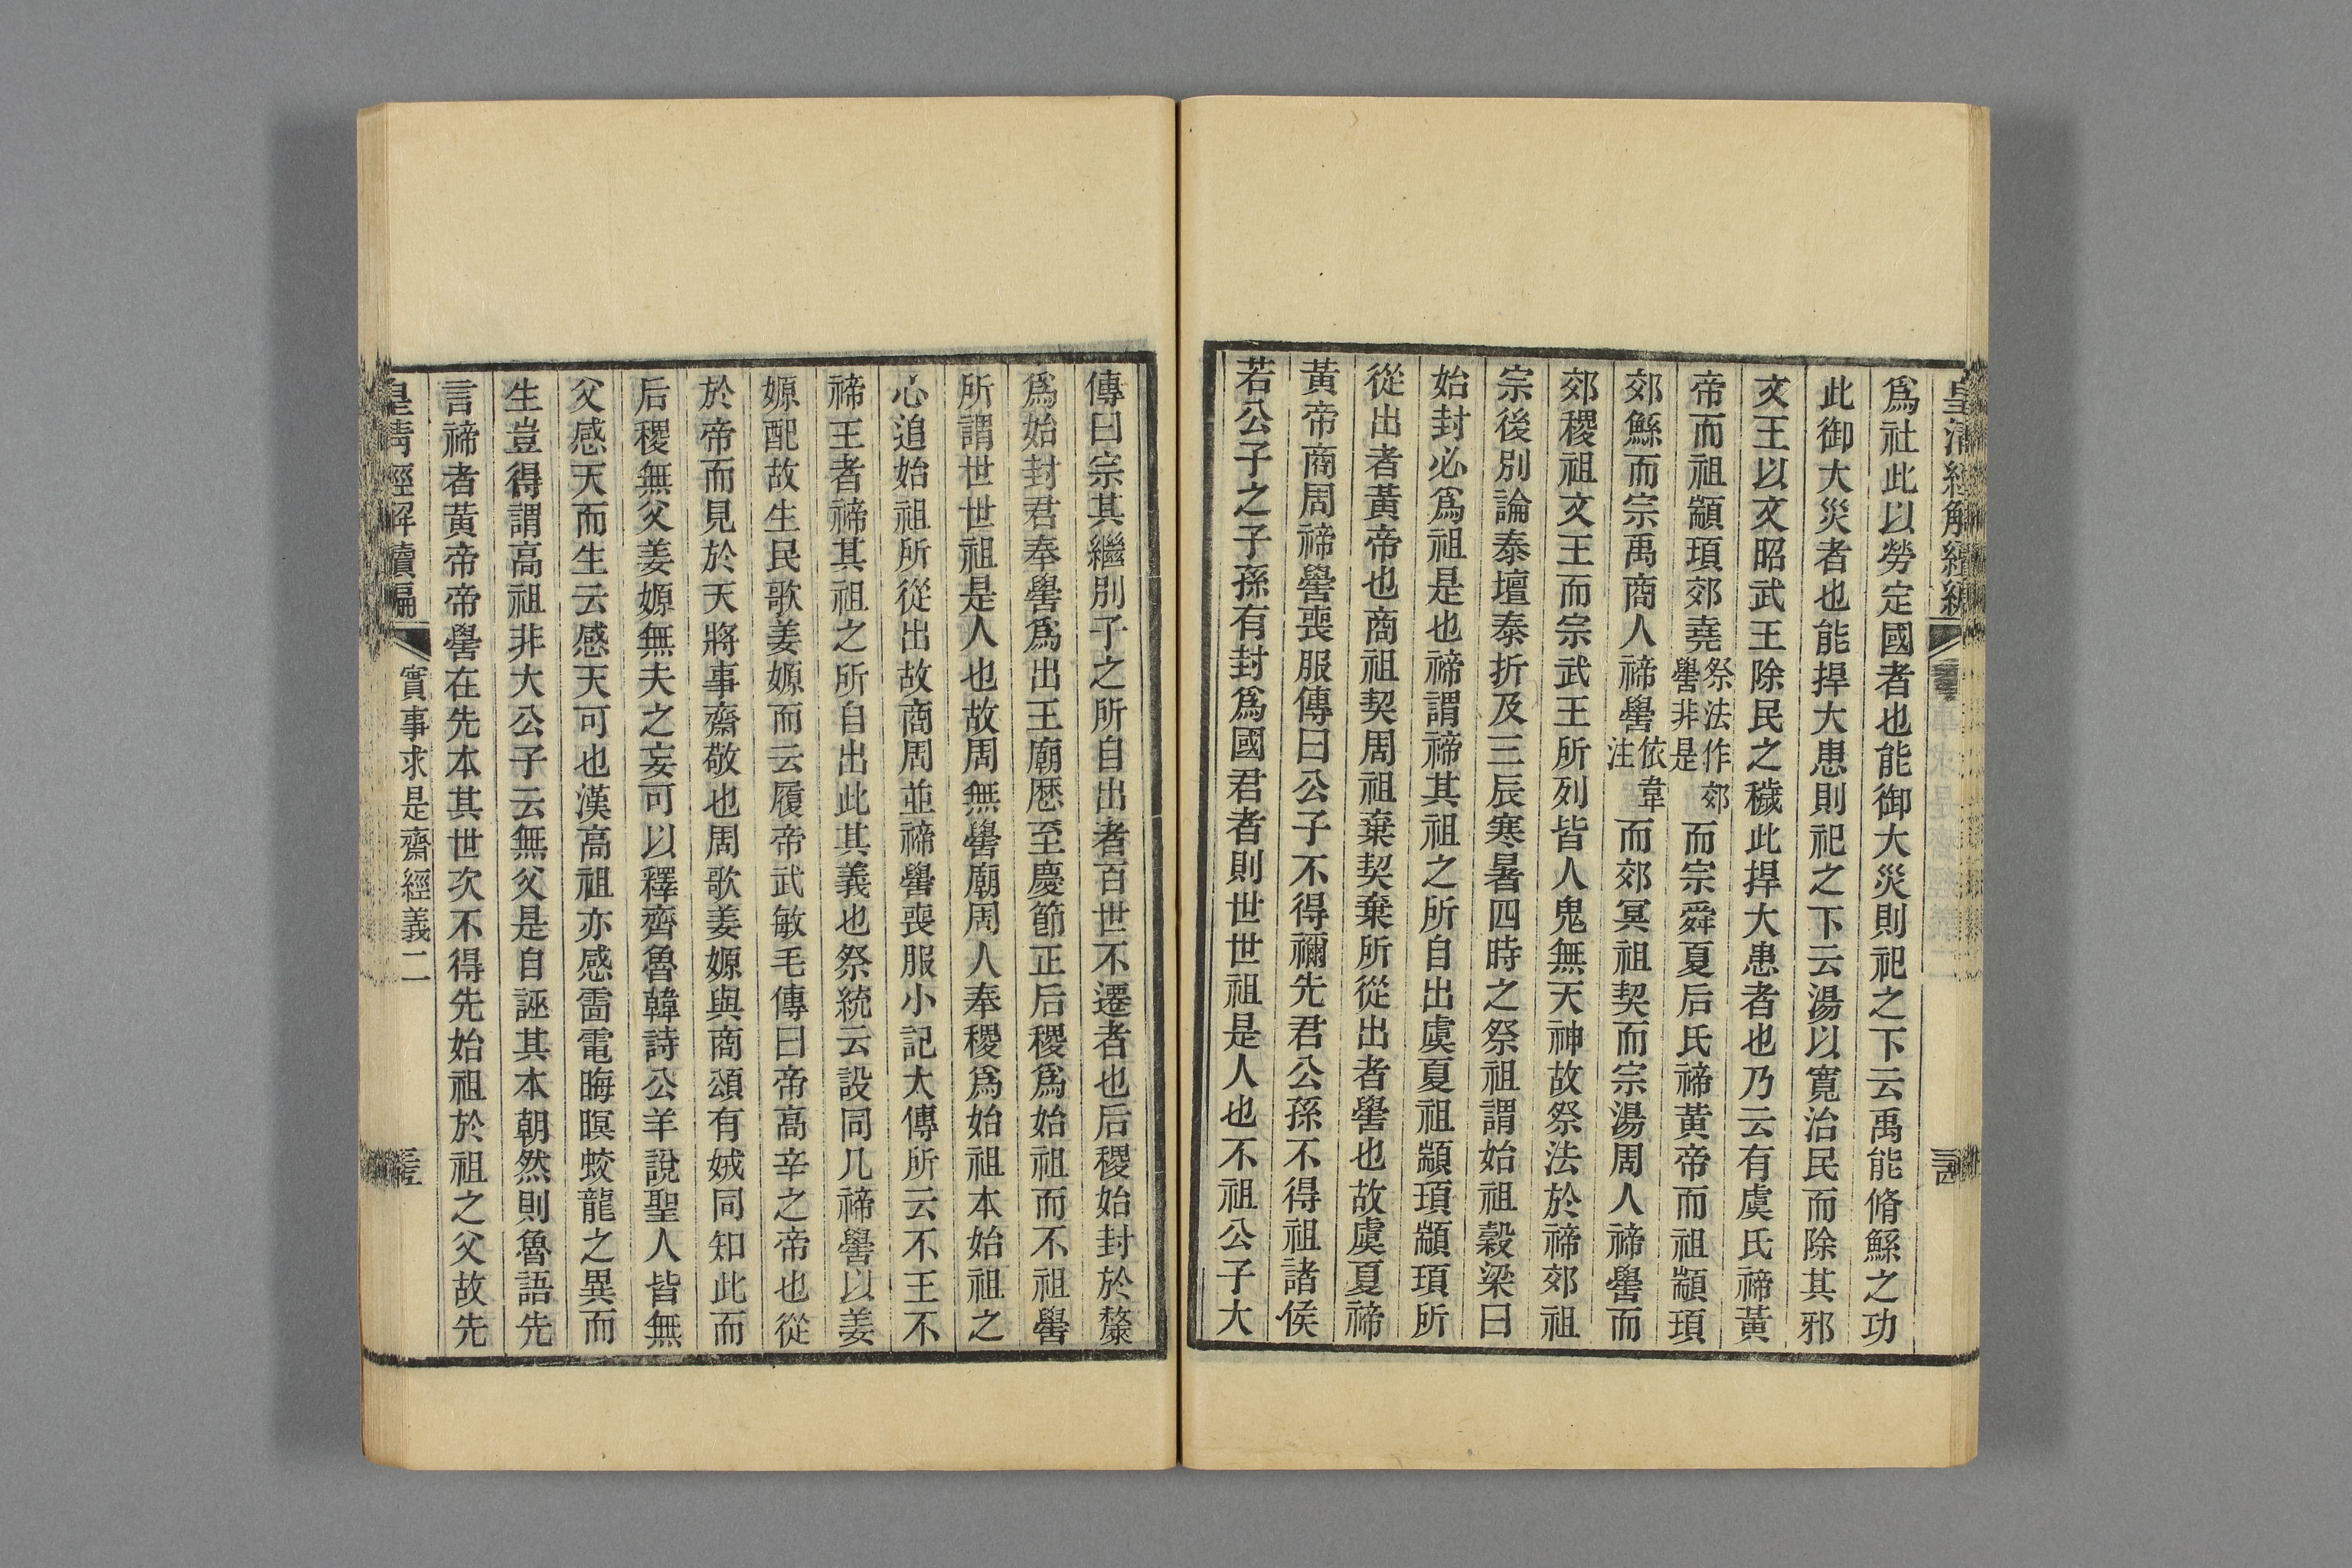 皇清經解續編
爲社此以勞定國者也能御大災則祀之下云禹能脩鯀之功
此御大災者也能捍大患則祀之下云湯以寬治民而除其邪
文王以文昭武王除民之穢此捍大患者也乃云有虞氏禘黃
帝而祖顓頊郊堯祭法作郊嚳非是而宗舜夏后氏禘黃帝而祖顓頊
郊鯀而宗禹商人禘嚳依韋注而郊冥祖契而宗湯周人禘嚳而
郊稷祖文王而宗武王所列皆人鬼無天神故祭法於禘郊祖
宗後別論泰壇泰折及三辰寒暑四時之祭祖謂始祖穀梁曰
始封必爲祖是也禘謂禘其祖之所自出虞夏祖顓頊顓頊所
從出者黃帝也商祖契周祖棄契棄所從出者嚳也故虞夏禘
黃帝商周禘嚳喪服傳曰公子不得禰先君公孫不得祖諸侯
若公子之子孫有封爲國君者則世世祖是人也不祖公子大
傳曰宗其繼別子之所自出者百世不遷者也后稷始封於斄
爲始封君奉嚳爲出王廟歷至慶節正后稷爲始祖而不祖嚳
所謂世世祖是人也故周無嚳廟周人奉稷爲始祖本始祖之
心追始祖所從出故商周並禘嚳喪服小記大傳所云不王不
禘王者禘其祖之所自出此其義也祭統云設同几禘嚳以姜
嫄配故生民歌姜嫄而云履帝武敏毛傳曰帝高辛之帝也從
於帝而見於天將事齋敬也周歌姜嫄與商頌有娀同知此而
后稷無父姜嫄無夫之妄可以釋齊魯韓詩公羊說聖人皆無
父感天而生云感天可也漢高祖亦感雷電晦暝蛟龍之異而
生豈得謂高祖非大公子云無父是自誣其本朝然則魯語先
言禘者黃帝帝嚳在先本其世次不得先始祖於祖之父故先
皇清經解續編 實事求是齋經義二